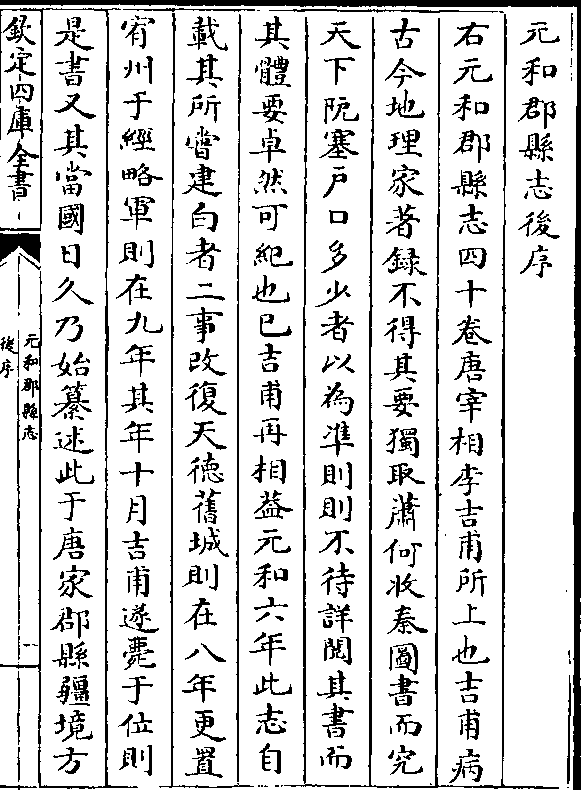 元和郡縣志後序
右元和郡縣志四十卷唐宰相李吉甫所上也吉甫病
古今地理家著録不得其要獨取蕭何收秦圖書而究
天下阨塞戸口多少者以為凖則則不待詳閲其書而
其體要卓然可紀也已吉甫再相益元和六年此志自
載其所嘗建白者二事改復天徳舊城則在八年更置
宥州于經略軍則在九年其年十月吉甫遂薨于位則
是書又其當國日久乃始纂述此于唐家郡縣疆境方
欽定四庫全書
元和郡縣志
後序
一